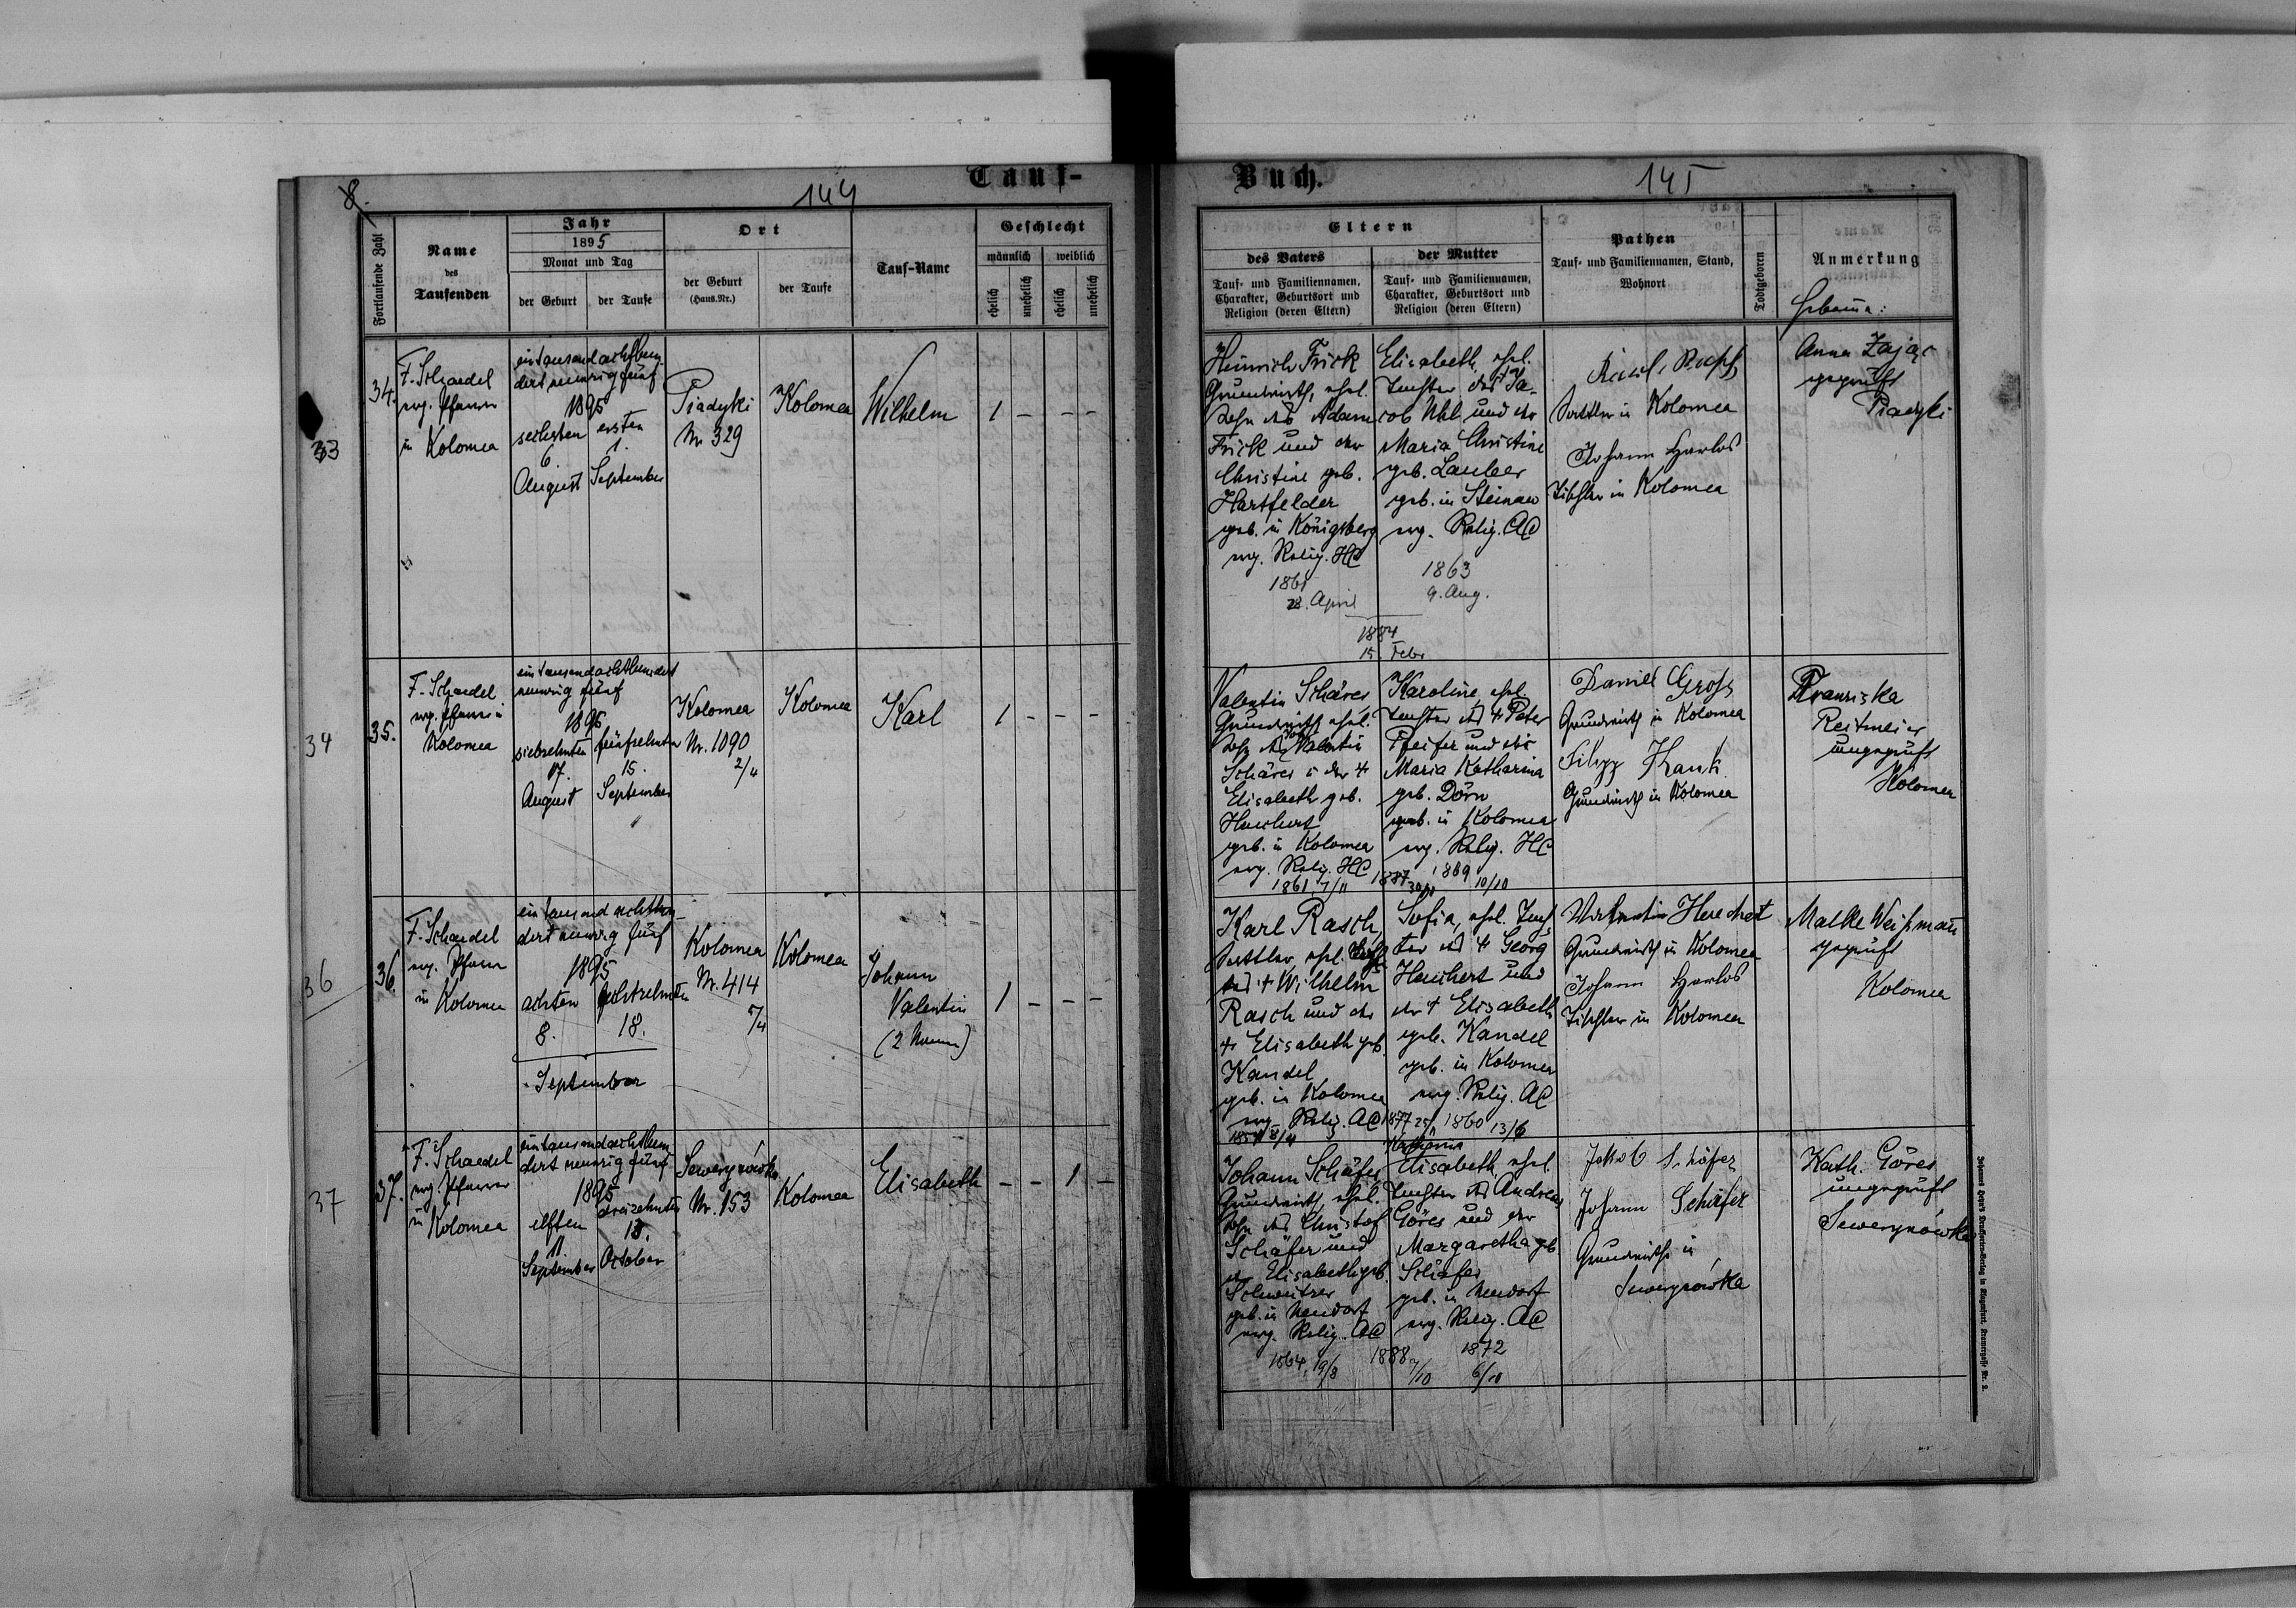 8.
144
Tauf-
Fortlaufende Zahl
Name
des
Taufenden
Jahr
1895
Monat und Tag
der Geburt
der Taufe
Ort
der Geburt
(Haus-Nr.)
der Taufe
Tauf-Name
Geschlecht
männlich
weiblich
ehelich
unehelich
ehelich
unehelich
33
34.
F. Schaedel
evg. Pfarrer
in Kolomea
eintausendachthun-
dertneunzigfünf
1895
sechsten
6.
August
ersten
1.
September
Piadyki
Nr. 329
Kolomea
Wilhelm
1 - - -
34
35.
F. Schaedel
evg. Pfarrer in
Kolomea
eintausendachthundert
neunzig fünf
1895
siebzehnten
17.
August
fünfzehnten
15.
September
Kolomea
Nr. 1090
2/4
Kolomea
Karl
1 - - -
36
36.
F. Schaedel
evg. Pfarrer
in Kolomea
eintausend achthun-
dert neunzig fünf
1895
achten
8.
achtzehnten
18.
September
Kolomea
Nr. 414
5/4
Kolomea
Johann
Valentin
(2 Namen)
1 - - -
37
37.
F. Schaedel
evg. Pfarrer
in Kolomea
eintausendachthun-
dert neunzig fünf
1895
elften
11.
September
dreizehnten
13.
October
Sewerynówka
Nr. 153
Kolomea
Elisabeth
- - 1 -
Buch.
145
Eltern
des Vaters
Tauf- und Familiennamen,
Charakter, Geburtsort und
Religion (deren Eltern)
der Mutter
Tauf- und Familiennamen,
Charakter, Geburtsort und
Religion (deren Eltern)
Pathen
Tauf- und Familiennamen, Stand,
Wohnort
Todtgeboren
Anmerkung
Hebamme:
Heinrich Frick
Grundwirth, ehel.
Sohn des Adam
Frick und der
Christine geb.
Hartfelder
geb. in Königsberg
evg. Relig. HC
1861
28. April
Elisabeth, ehel.
Tochter des Ja-
cob Uhl und der
Maria Christine
geb. Lauber
geb. in Steinau
evg. Relig. AC
1863
9. Aug.
1884
15. Febr
Rupp
Sattler in Kolomea
Johann Harlos
Tischler in Kolomea
Anna Zając
geprüft
Piadyki
Valentin Schärer
Grundwirth ehel.
Sohn des Valentin
Schärer u der †
Elisabeth geb.
Heuchert
geb. in Kolomea
evg. Relig. HC
1861 7/11
Karoline, ehel.
Tochter des † Peter
Pfeifer und der
Maria Katharina
geb. Dörn
geb. in Kolomea
evg. Relig. HC
1887
1869 10/10
Daniel Gross
Grundwirth in Kolomea
Filipp Hank
Grundwirth in Kolomea
Franziska
Reitmeier
ungeprüft
Kolomea
Karl Rasch,
Sattler, ehel. Sohn
des † Wilhelm
Rasch und der
† Elisabeth geb.
Kandel
geb. in Kolomea
evg. Relig. AC
Sofia, ehel. Toch-
ter des † Georg
Heuchert und
der † Elisabeth
geb. Kandel
geb. in Kolomea
evg. Relig. AC
1877
1860 13/6
Valentin Heuchert
Grundwirth in Kolomea
Johann Harlos
Tischler in Kolomea
Malke Weißmann
geprüft
Kolomea
Johann Schäfer
Grundwirth, ehel.
Sohn des Christof
Schäfer und
der Elisabeth geb.
Schweitzer
geb. in Neudorf
evg. Relig. AC
1864, 19/8
Katharina
Elisabeth, ehel.
Tochter des Andreas
Göres und der
Margaretha geb.
Schäfer
geb. in Neudorf
evg. Relig. AC
1888 7/10
1872
6/10
Jakob Schäfer
Johann Schäfer
Grundwirthe in
Sewerynówka
Kath. Göres
ungeprüft
Sewerynówka